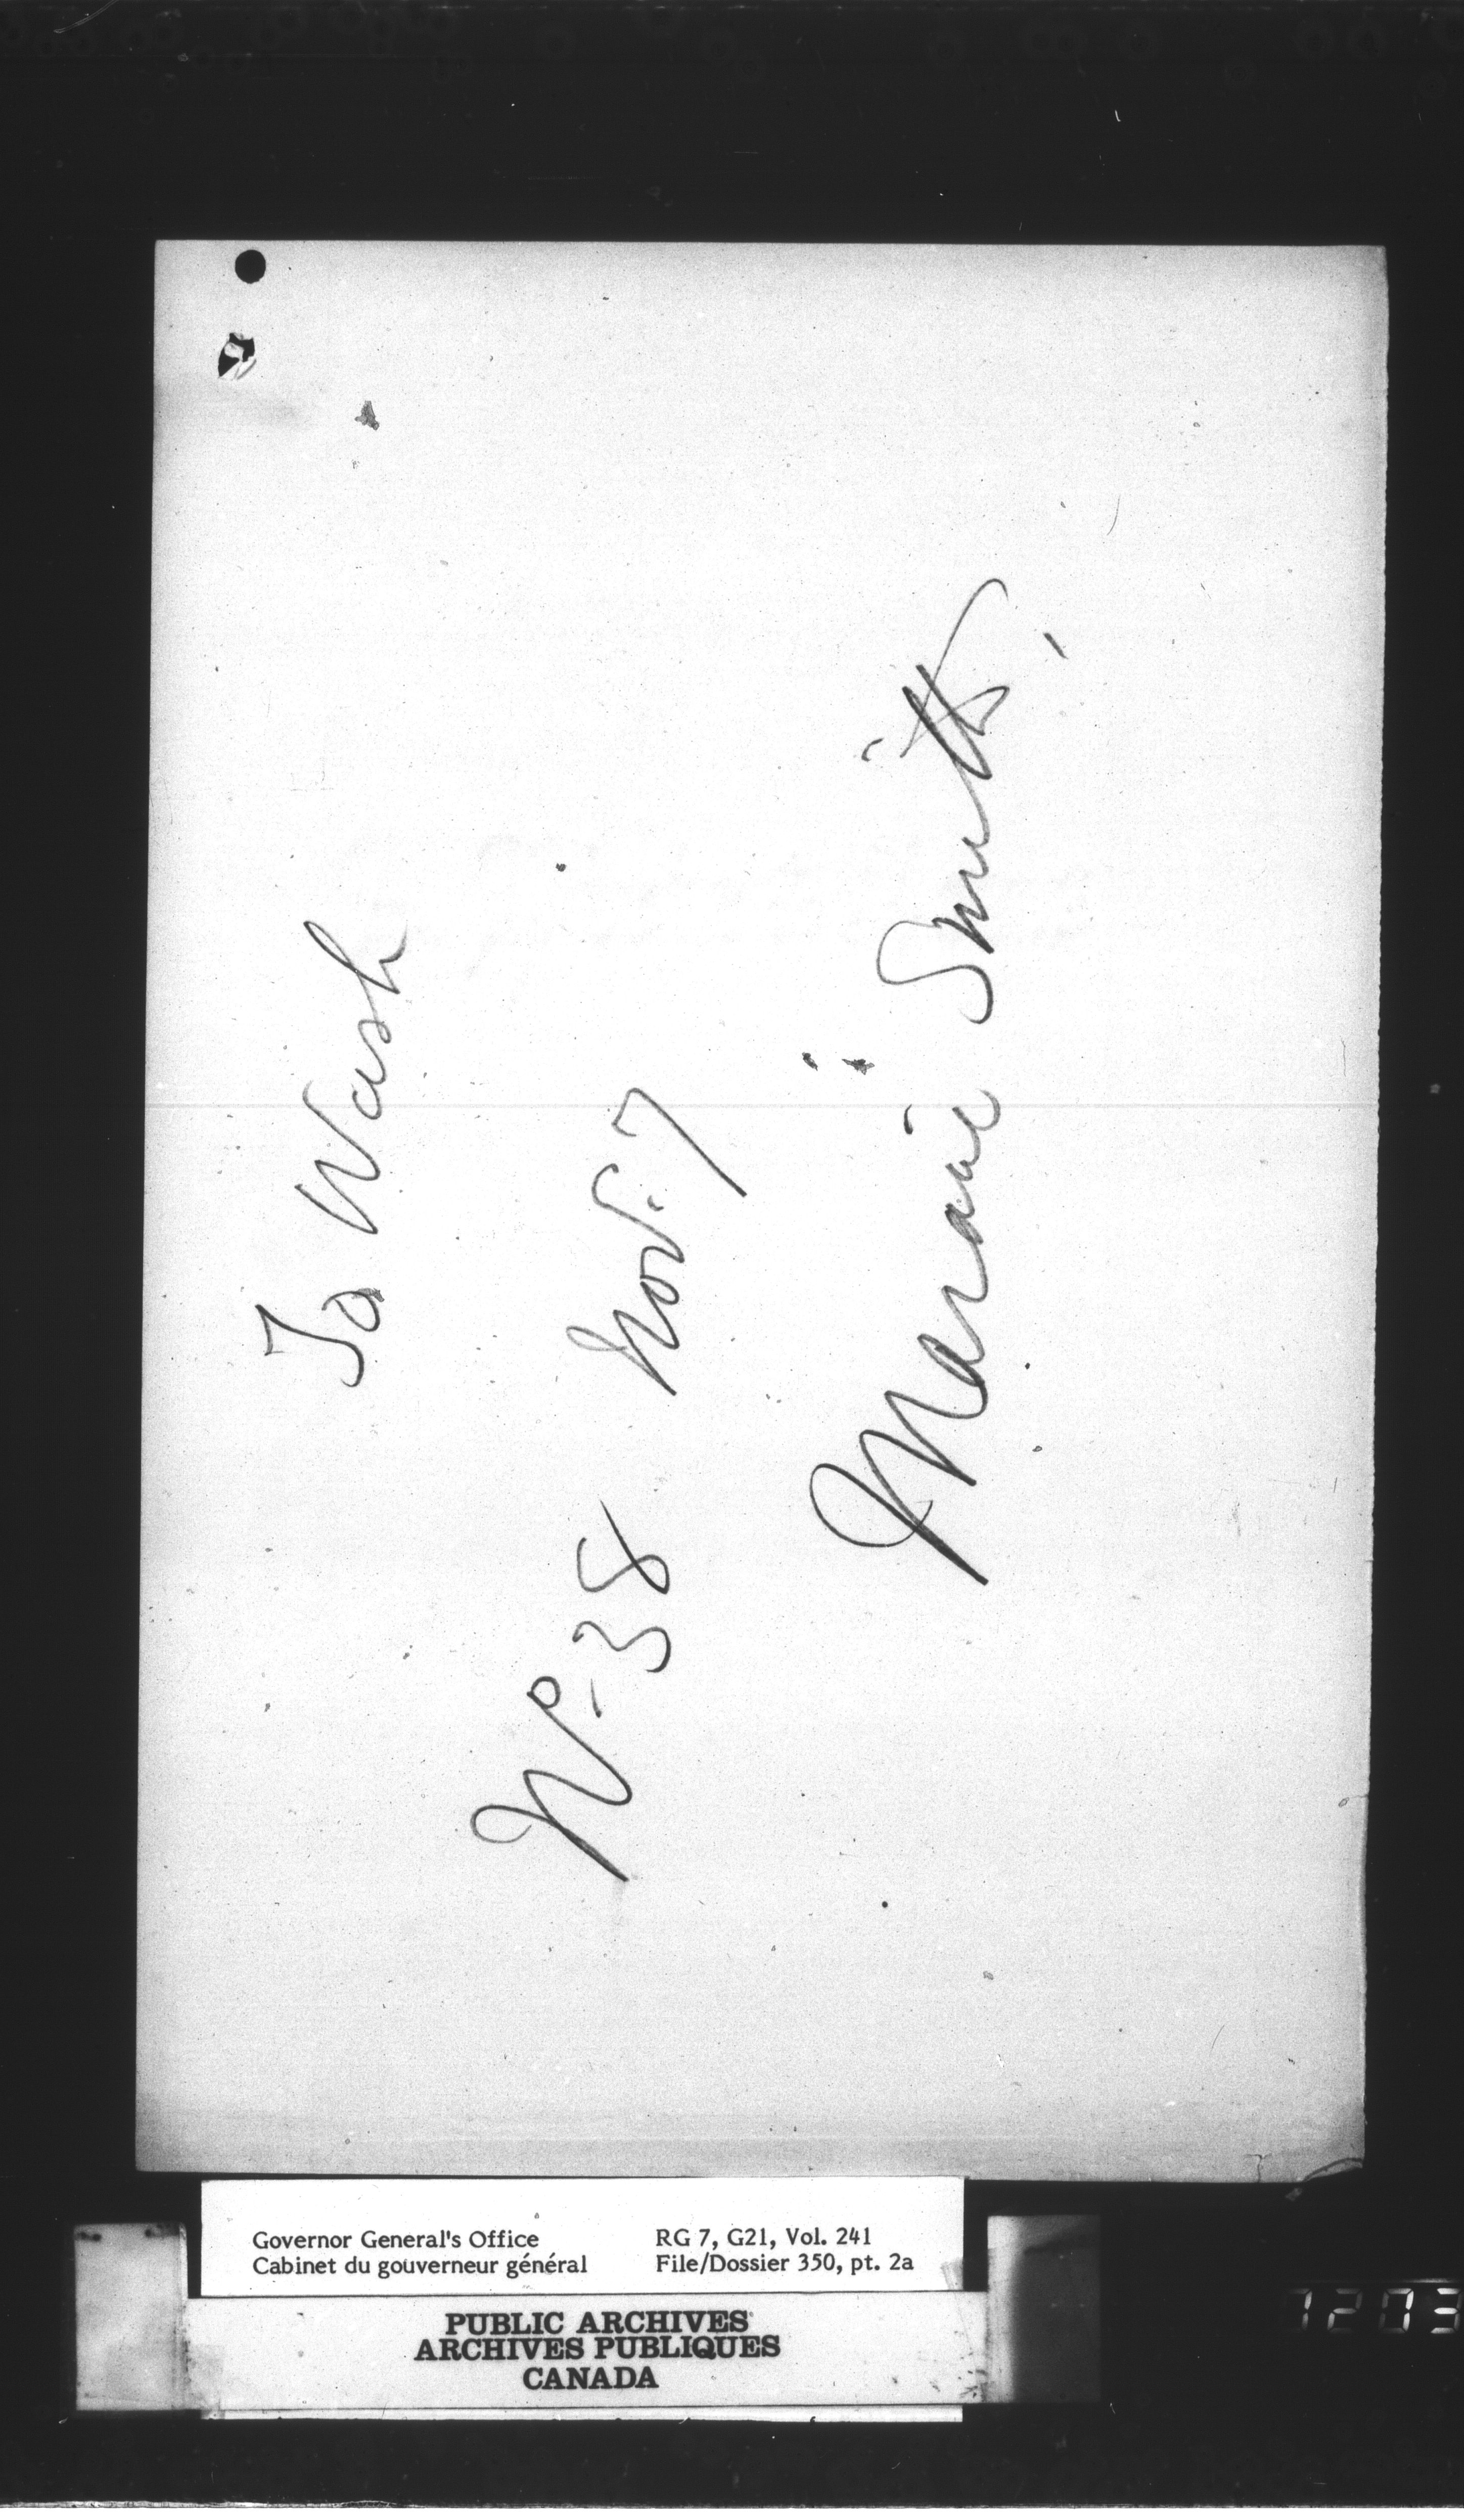 To Wash
No. 38 Nov. 7
Marine Smith,
Governor General's Office RG 7, G21, Vol. 241
Cabinet du gouverneur général File/Dossier 350, pt. 2a
PUBLIC ARCHIVES
ARCHIVES PUBLIQUES
CANADA
7203